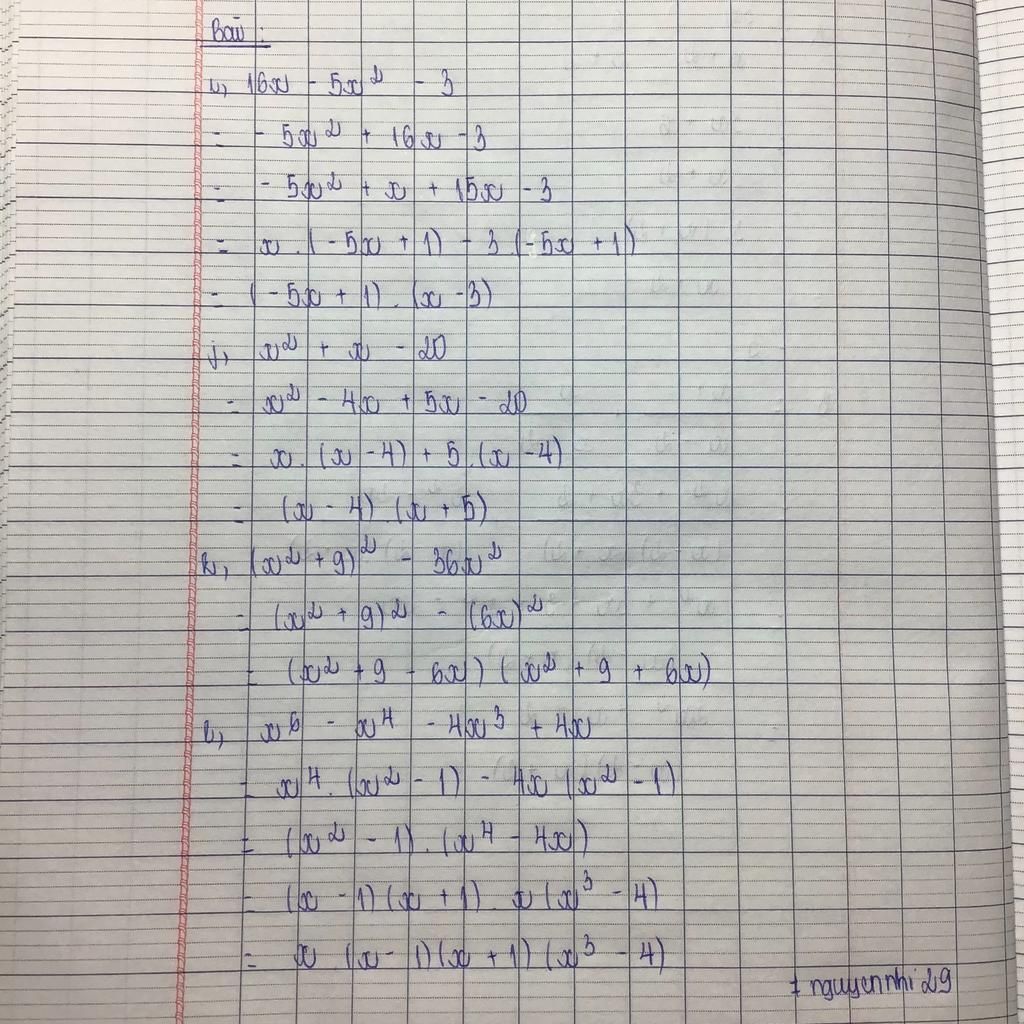 Bài :
i, 16x - 5x² - 3
= - 5x² + 16x - 3
= - 5x² + x + 15x - 3
= x . (- 5x + 1) - 3 . (- 5x + 1)
= (- 5x + 1) . (x - 3)
j, x² + x - 20
= x² - 4x + 5x - 20
= x . (x - 4) + 5 . (x - 4)
= (x - 4) (x + 5)
k, (x² + 9)² - 36x²
= (x² + 9)² - (6x)²
= (x² + 9 - 6x) (x² + 9 + 6x)
l, x⁶ - x⁴ - 4x³ + 4x
= x⁴ . (x² - 1) - 4x (x² - 1)
= (x² - 1) . (x⁴ - 4x)
= (x - 1) (x + 1) . x (x³ - 4)
= x . (x - 1) (x + 1) (x³ - 4)
nguyennhi29